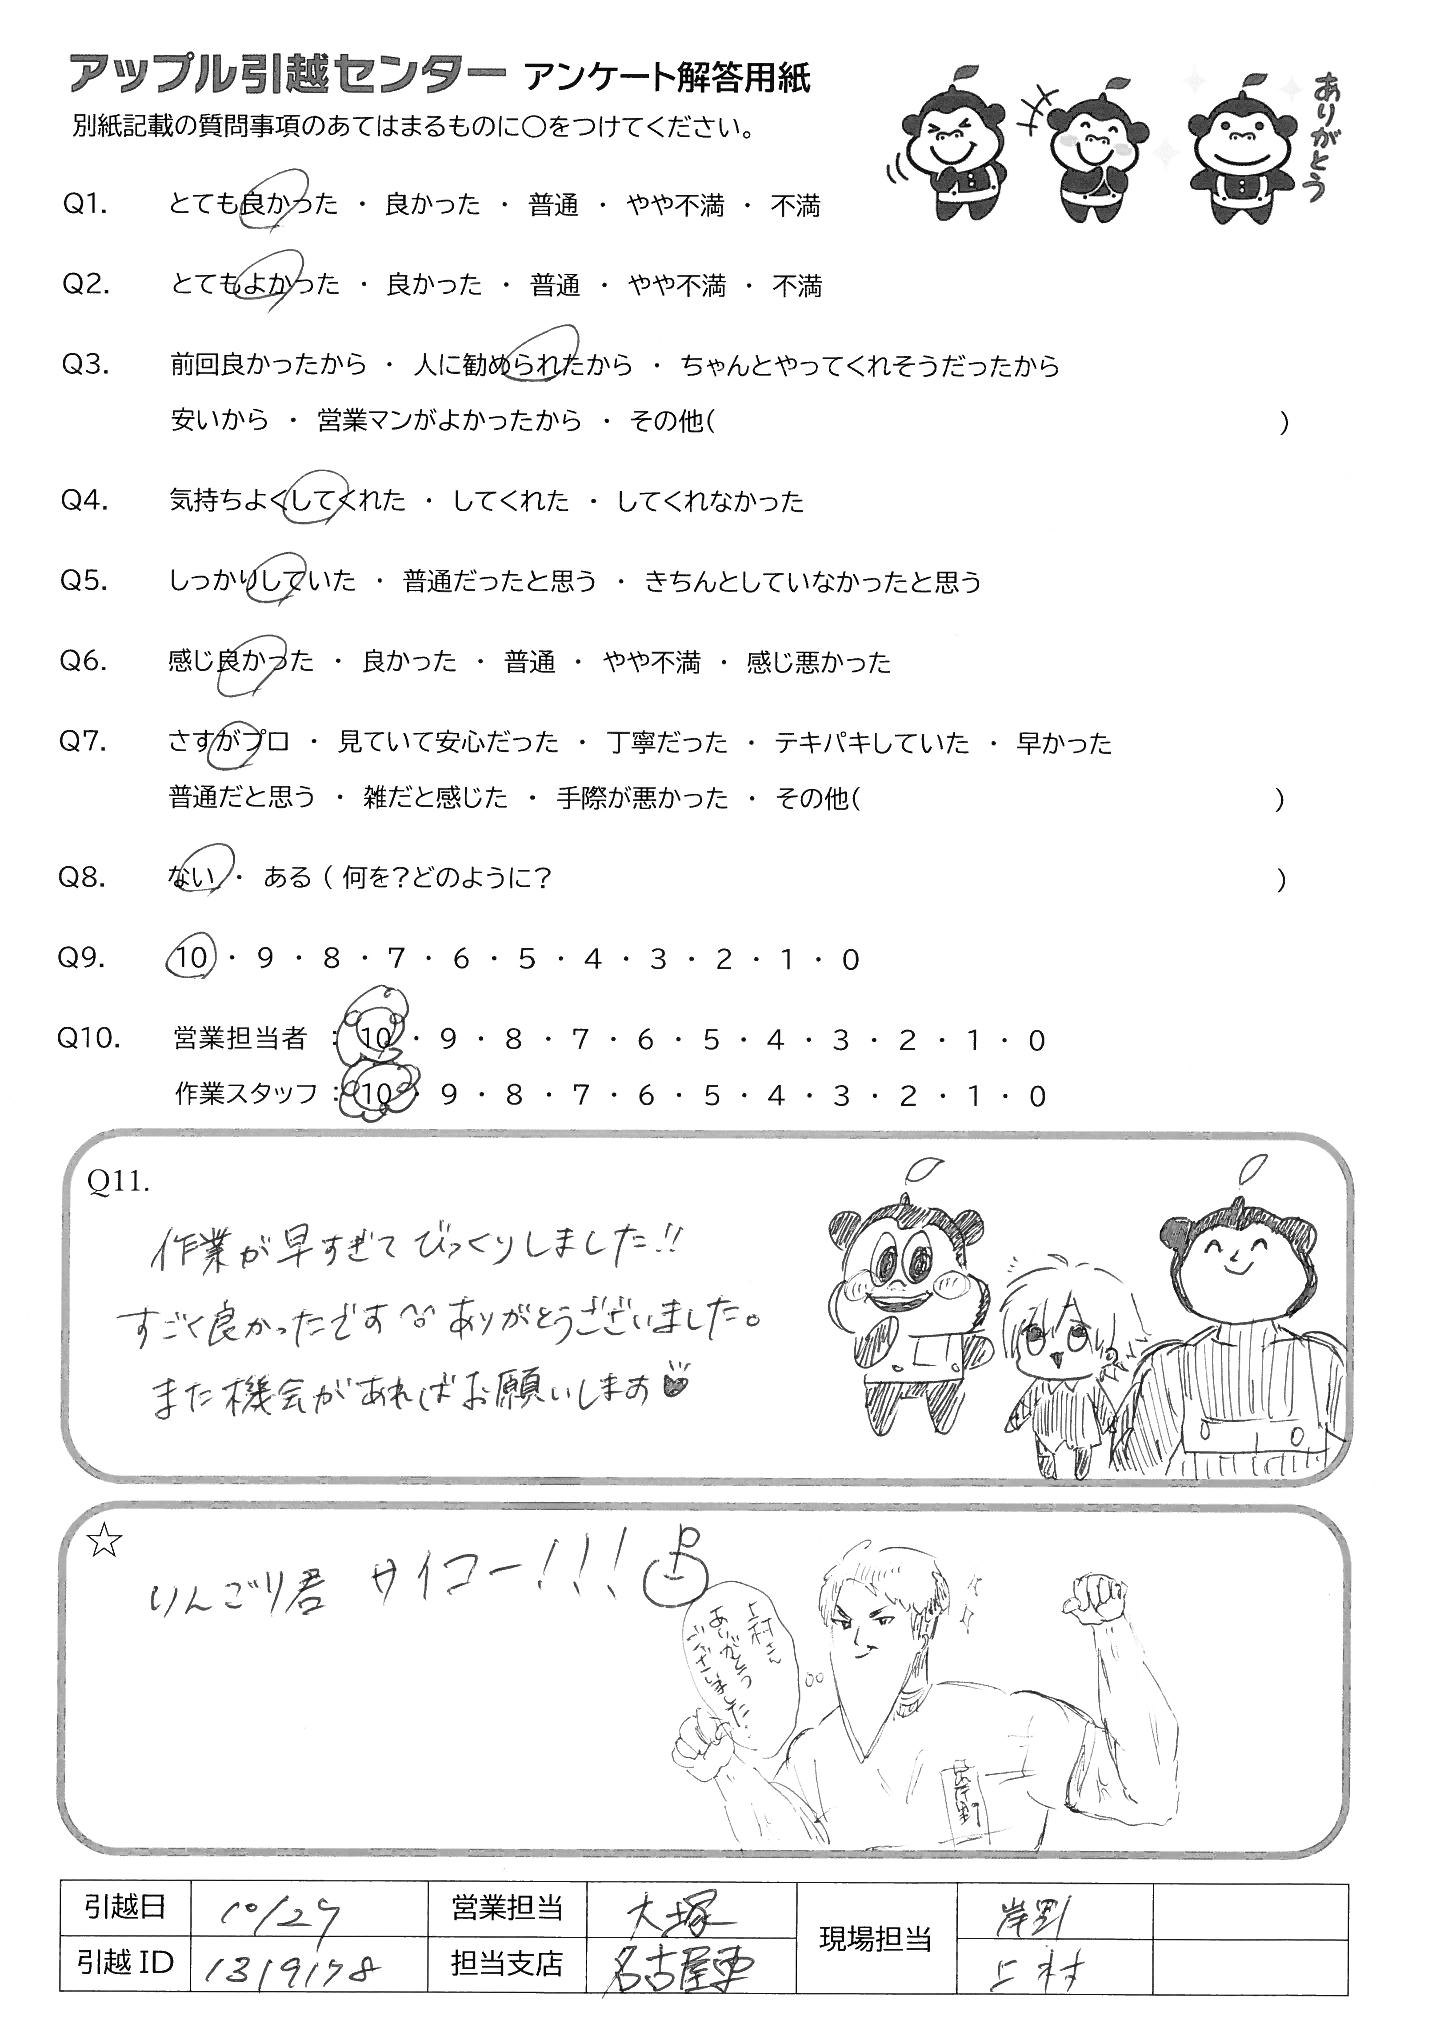 アップル引越センター アンケート解答用紙
別紙記載の質問事項のあてはまるものに○をつけてください。
ありがとう
Q1. とても良かった ・ 良かった ・ 普通 ・ やや不満 ・ 不満
Q2. とてもよかった ・ 良かった ・ 普通 ・ やや不満 ・ 不満
Q3. 前回良かったから ・ 人に勧められたから ・ ちゃんとやってくれそうだったから
安いから ・ 営業マンがよかったから ・ その他( )
Q4. 気持ちよくしてくれた ・ してくれた ・ してくれなかった
Q5. しっかりしていた ・ 普通だったと思う ・ きちんとしていなかったと思う
Q6. 感じ良かった ・ 良かった ・ 普通 ・ やや不満 ・ 感じ悪かった
Q7. さすがプロ ・ 見ていて安心だった ・ 丁寧だった ・ テキパキしていた ・ 早かった
普通だと思う ・ 雑だと感じた ・ 手際が悪かった ・ その他( )
Q8. ない ・ ある ( 何を?どのように? )
Q9. 10 ・ 9 ・ 8 ・ 7 ・ 6 ・ 5 ・ 4 ・ 3 ・ 2 ・ 1 ・ 0
Q10. 営業担当者 : 10 ・ 9 ・ 8 ・ 7 ・ 6 ・ 5 ・ 4 ・ 3 ・ 2 ・ 1 ・ 0
作業スタッフ : 10 ・ 9 ・ 8 ・ 7 ・ 6 ・ 5 ・ 4 ・ 3 ・ 2 ・ 1 ・ 0
Q11.
作業が早すぎてびっくりしました!!
すごく良かったです^^ありがとうございました。
また機会があればお願いします
☆
りんごり君 サイコー!!!
上村さん
ありがとう
ございました.
岸野
引越日 10/27 営業担当 大塚 現場担当 岸野
引越ID 1319178 担当支店 名古屋東 上村